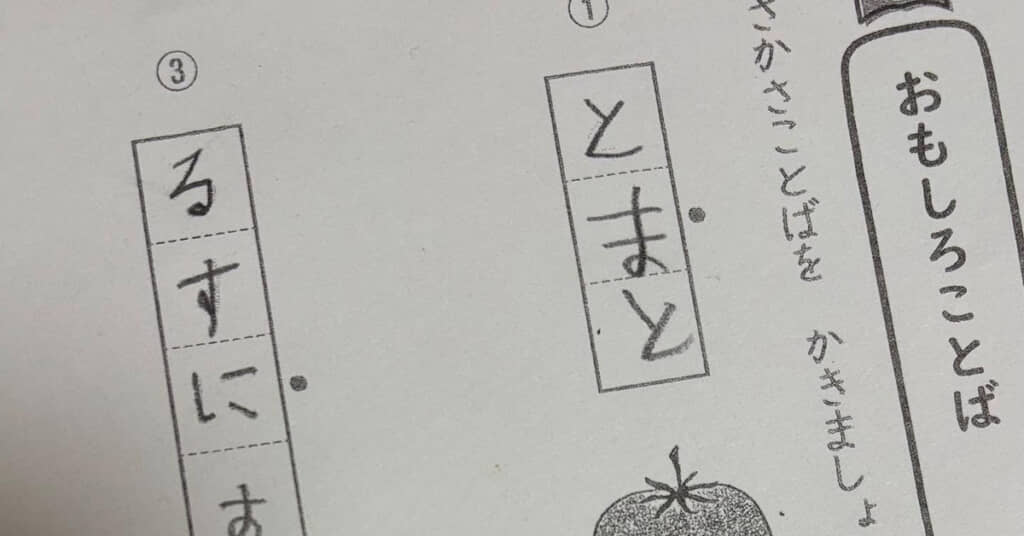 おもしろことば
さかさことばを かきましょ
①
とまと
③
るすにす